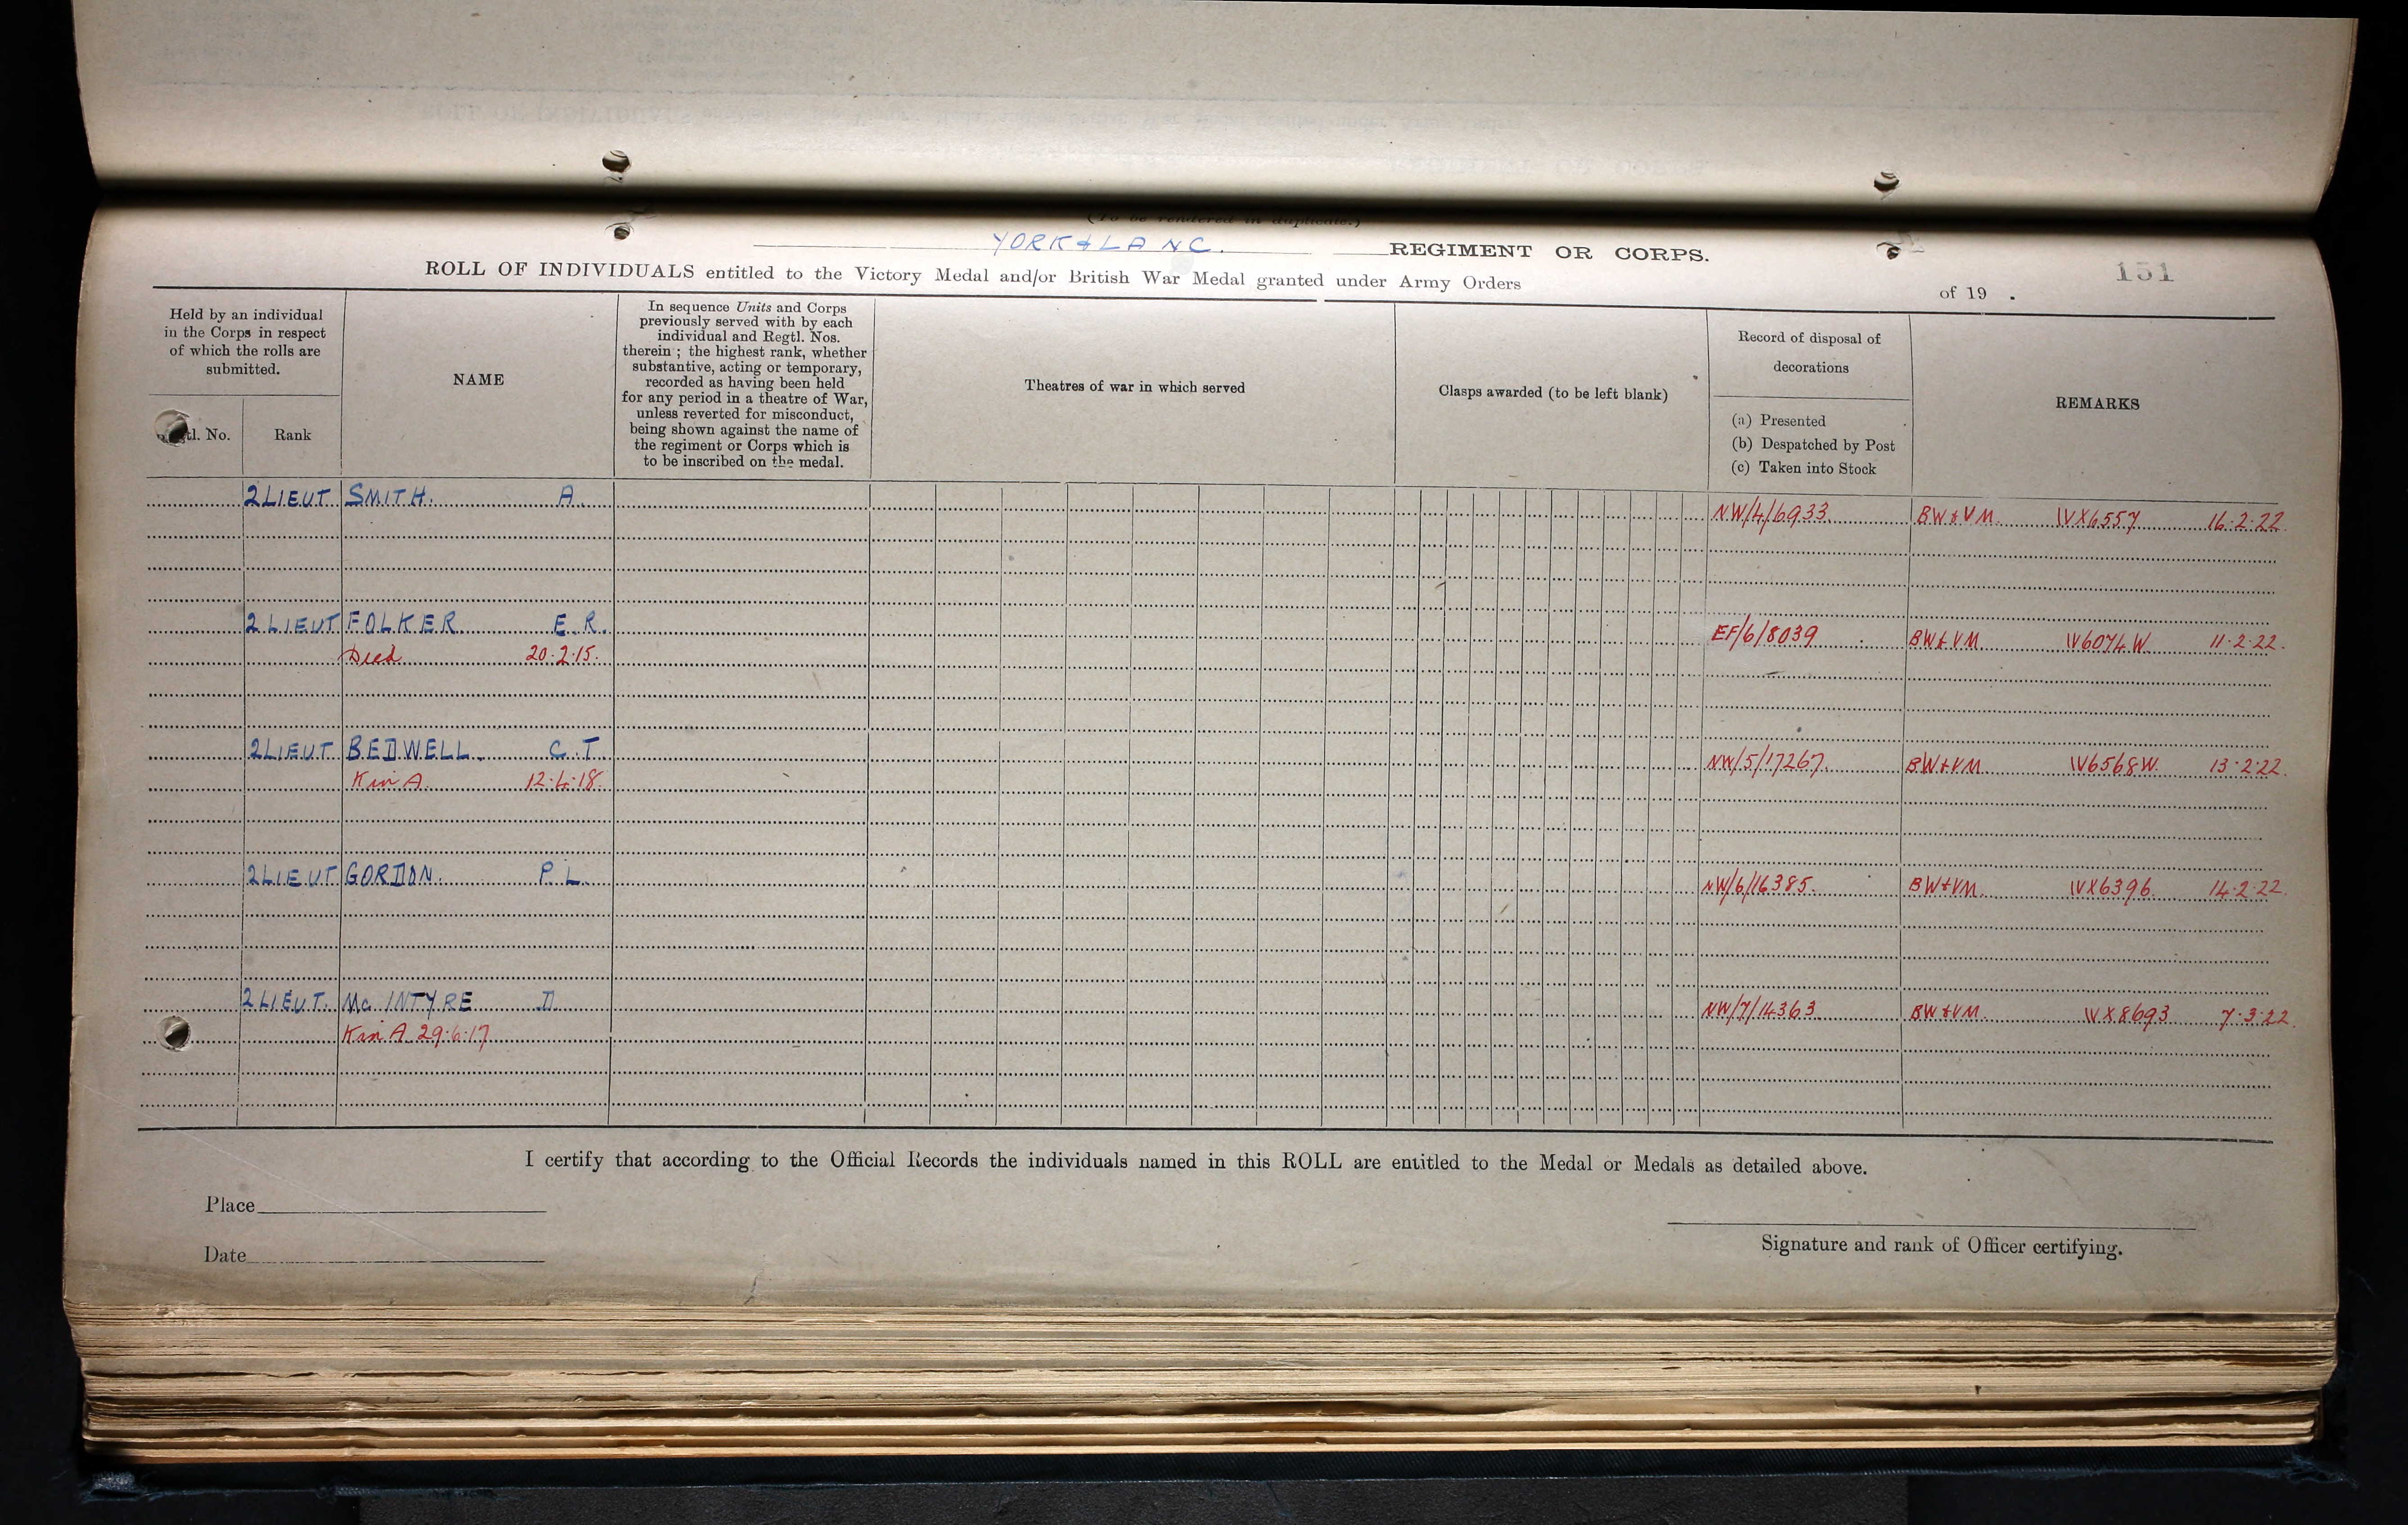 (To be rendered in duplicate.)
YORK & LANC. REGIMENT OR CORPS.
151
ROLL OF INDIVIDUALS entitled to the Victory Medal and/or British War Medal granted under Army Orders of 19 .
Held by an individual
in the Corps in respect
of which the rolls are
submitted.
tl. No.
Rank
NAME
In sequence Units and Corps
previously served with by each
individual and Regtl. Nos.
therein ; the highest rank, whether
substantive, acting or temporary,
recorded as having been held
for any period in a theatre of War,
unless reverted for misconduct,
being shown against the name of
the regiment or Corps which is
to be inscribed on the medal.
Theatres of war in which served
Clasps awarded (to be left blank)
Record of disposal of
decorations
(a) Presented
(b) Despatched by Post
(c) Taken into Stock
REMARKS
2 LIEUT SMITH. A. NW/4/6933 BW & VM. IVX6557 16.2.22
2 LIEUT FOLKER E.R. EF/6/8039 BW & VM IV6074W 11.2.22.
Died 20.2.15.
2 LIEUT BEDWELL C.T. NW/5/17267. BW & VM IV6568W 13.2.22.
K in A. 12.4.18.
2 LIEUT GORDON. P.L. NW/6/16385. BW & VM. IVX6396 14.2.22.
2 LIEUT. McINTYRE D NW/7/14363 BW & VM. IVX8693 7.3.22.
K in A 29.6.17
I certify that according to the Official Records the individuals named in this ROLL are entitled to the Medal or Medals as detailed above.
Place
Date
Signature and rank of Officer certifying.